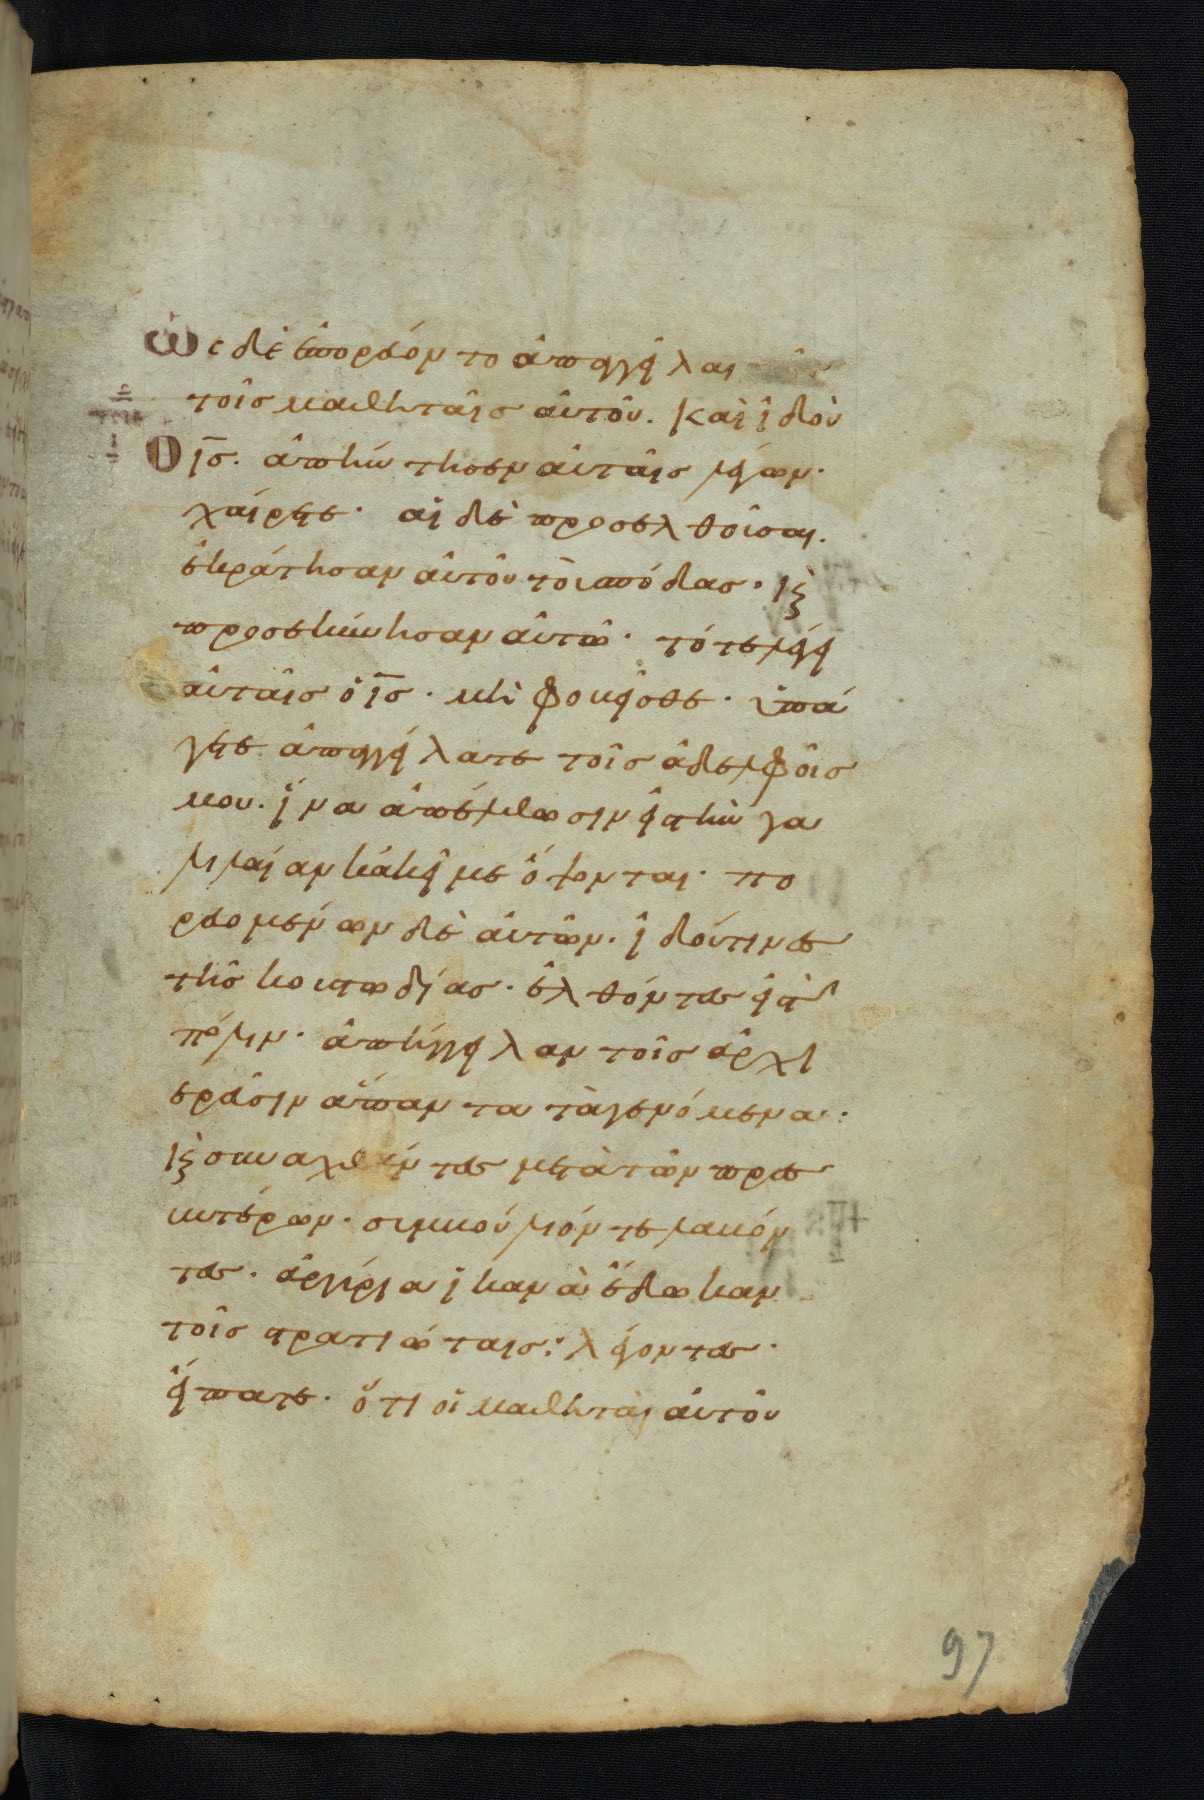 ὡς δὲ ἐπορεύοντο ἀπαγγεῖλαι
τοῖς μαθηταῖς αὐτοῦ. Καὶ ἰδοὺ
ὁ ις. ἀπήντησεν αὐταῖς λέγων·
χαίρετε· αἱ δὲ προσελθοῦσαι.
ἐκράτησαν αὐτοῦ τοὺς πόδας· κ
προσεκύνησαν αὐτῶ· τότε λέγει
αὐταῖς ὁ ις· μὴ φοβεῖσθε· ὑπά
γετε ἀπαγγείλατε τοῖς ἀδελφοῖς
μου. ἵνα ἀπέλθωσιν εἰς τὴν γα
λιλαίαν κἀκεῖ με ὄψονται· πο
ρευομένων δὲ αὐτῶν. ἰδού τινες
τῆς κουστωδίας· ἐλθόντες εἰς τ
πόλιν· ἀπήγγειλαν τοῖς ἀρχι
ερεῦσιν ἅπαντα τὰ γενόμενα·
κ συναχθέντες μετὰ τῶν πρεσ
βυτέρων· συμβούλιόν τε λαβόν
τες· ἀργύρια ἱκανὰ ἔδωκαν
τοῖς στρατιώταις· λέγοντες·
εἴπατε· ὅτι οἱ μαθηταὶ αὐτοῦ
97